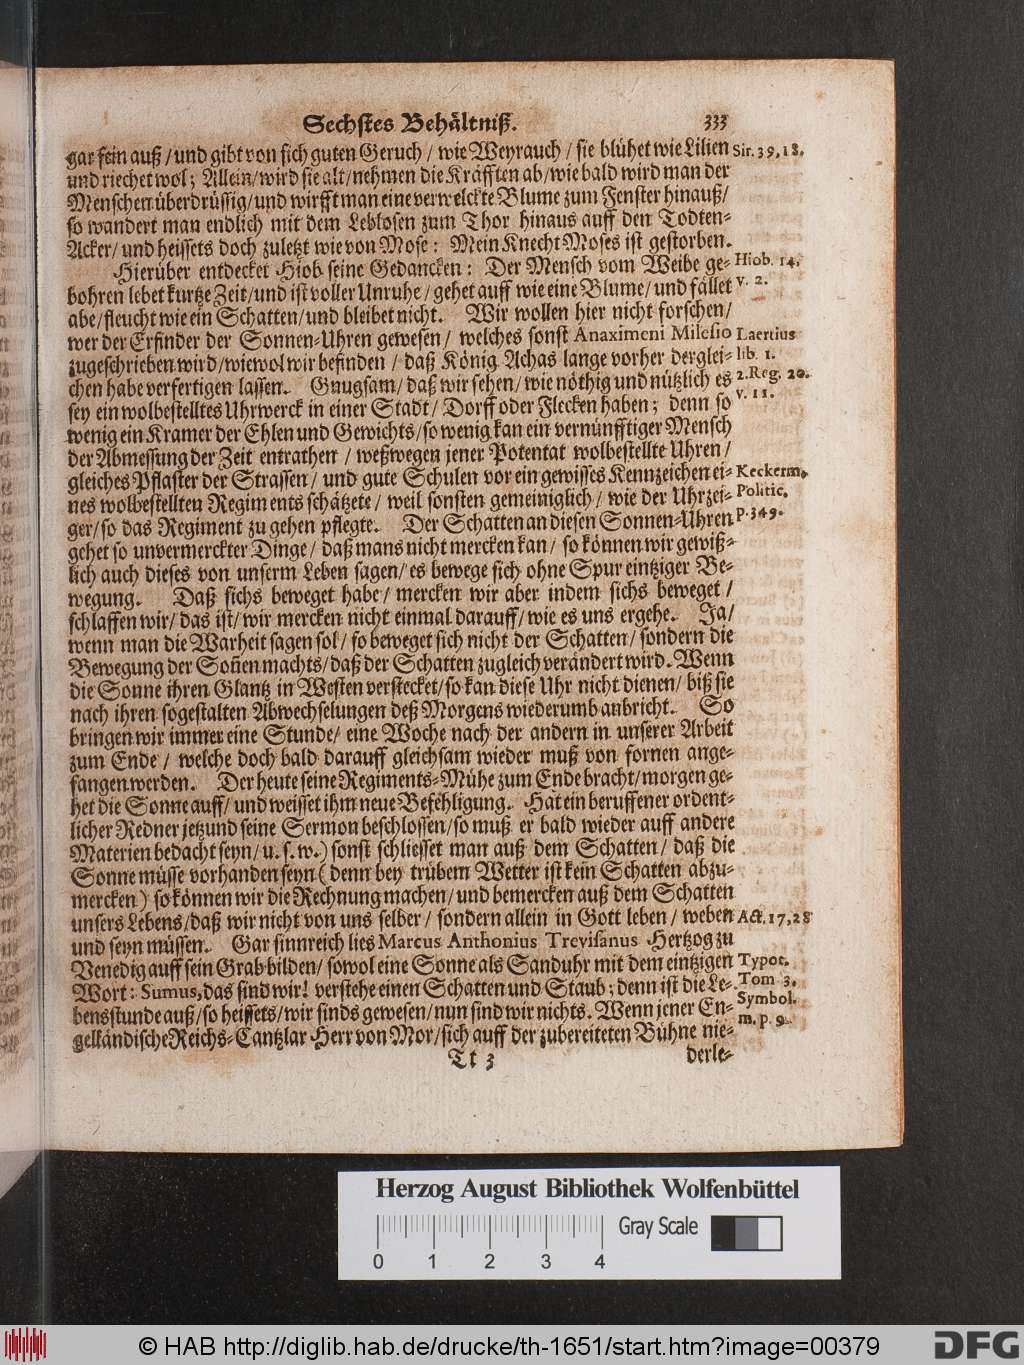 Sechstes Behältniß. 333
gar fein auß / und gibt von sich guten Geruch / wie Weyrauch / sie blühet wie Lilien Sir. 39, 18.
und riechet wol; Allein / wird sie alt / nehmen die Kräfften ab / wie bald wird man der
Menschen überdrüssig / und wirfft man eine verwelckte Blume zum Fenster hinauß /
so wandert man endlich mit dem Leblosen zum Thor hinaus auff den Todten-
Acker / und heissets doch zuletzt wie von Mose: Mein Knecht Moses ist gestorben.
Hierüber entdecket Hiob seine Gedancken: Der Mensch vom Weibe ge- Hiob. 14.
bohren lebet kurtze Zeit / und ist voller Unruhe / gehet auff wie eine Blume / und fället v. 2.
abe / fleucht wie ein Schatten / und bleibet nicht. Wir wollen hier nicht forschen /
wer der Erfinder der Sonnen-Uhren gewesen / welches sonst Anaximeni Milesio Laertius
zugeschrieben wird / wiewol wir befinden / daß König Achas lange vorher derglei- lib. 1.
chen habe verfertigen lassen. Gnugsam / daß wir sehen / wie nöthig und nützlich es 2. Reg. 20.
sey ein wolbestelltes Uhrwerck in einer Stadt / Dorff oder Flecken haben; denn so v. 11.
wenig ein Kramer der Ehlen und Gewichts / so wenig kan ein vernünfftiger Mensch
der Abmessung der Zeit entrathen / weßwegen jener Potentat wolbestellte Uhren /
gleiches Pflaster der Strassen / und gute Schulen vor ein gewisses Kennzeichen ei- Keckerm.
nes wolbestellten Regiments schätzete / weil sonsten gemeiniglich / wie der Uhrzei- Politic.
ger / so das Regiment zu gehen pflegte. Der Schatten an diesen Sonnen-Uhren p. 349.
gehet so unvermerckter Dinge / daß mans nicht mercken kan / so können wir gewiß-
lich auch dieses von unserm Leben sagen / es bewege sich ohne Spur eintziger Be-
wegung. Daß sichs beweget habe / mercken wir aber indem sichs beweget /
schlaffen wir / das ist / wir mercken nicht einmal darauff / wie es uns ergehe. Ja /
wenn man die Warheit sagen sol / so beweget sich nicht der Schatten / sondern die
Bewegung der Soñen machts / daß der Schatten zugleich verändert wird. Wenn
die Sonne ihren Glantz in Westen verstecket / so kan diese Uhr nicht dienen / biß sie
nach ihren sogestalten Abwechselungen deß Morgens wiederumb anbricht. So
bringen wir immer eine Stunde / eine Woche nach der andern in unserer Arbeit
zum Ende / welche doch bald darauff gleichsam wieder muß von fornen ange-
fangen werden. Der heute seine Regiments-Mühe zum Ende bracht / morgen ge-
het die Sonne auff / und weisset ihm neue Befehligung. Hat ein beruffener ordent-
licher Redner jetzund seine Sermon beschlossen / so muß er bald wieder auff andere
Materien bedacht seyn / u. s. w.) sonst schliesset man auß dem Schatten / daß die
Sonne müsse vorhanden seyn (denn bey trübem Wetter ist kein Schatten abzu-
mercken) so können wir die Rechnung machen / und bemercken auß dem Schatten
unsers Lebens / daß wir nicht von uns selber / sondern allein in Gott leben / weben Act. 17, 28
und seyn müssen. Gar sinnreich lies Marcus Anthonius Trevisanus Hertzog zu
Venedig auff sein Grab bilden / sowol eine Sonne als Sanduhr mit dem eintzigen Typot.
Wort: Sumus, das sind wir! verstehe einen Schatten und Staub; denn ist die Le- Tom 3.
bensstunde auß / so heissets / wir sinds gewesen / nun sind wir nichts. Wenn jener En- Symbol.
gelländische Reichs-Cantzlar Herr von Mor / sich auff der zubereiteten Bühne nie- m. p. 9.
Tt 3 derle-
Herzog August Bibliothek Wolfenbüttel
Gray Scale
0 1 2 3 4
© HAB http://diglib.hab.de/drucke/th-1651/start.htm?image=00379 DFG